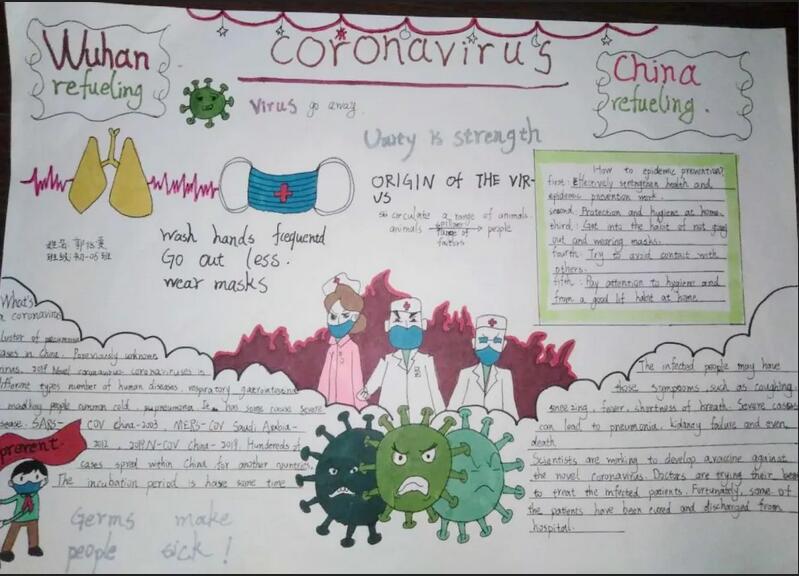 Wuhan
refueling
coronavirus
China
refueling.
Virus go away.
Unity is strength
姓名
班级:初一05班
wash hands frequented
Go out less.
wear masks
ORIGIN OF THE VIR-
US
circulate a range of animals.
animals people
factors
How to epidemic prevention?
first: Effectively strengthen health and
epidemic prevention work.
second: Protection and hygiene at home.
third: Get into the habit of not going
out and wearing masks.
fourth: Try to avoid contact with
others.
fifth: Pay attention to hygiene and
from a good lif habit at home
What's
a coronavirus
cases in China.
novel coronavirus coronaviruses is
different types number of human diseases respiratory
people common cold, It has some cause severe
SARS-COV china-2003, MERS-COV Saudi Arabia-
2012, 2019.N-COV China-2019. Hundereds of
cases spread within China for another countries.
The incubation period is have some time
prevent
Germs make
people sick!
The infected people may have
those symptoms such as coughing
sneezing, fever, shortness of breath. Severe cases
can lead to pneumonia, kidaney failure and even
death.
Scientists are working to develop a vaccine against
the novel coronavirus. Doctors are trying their best
to treat the infected patients. Fortunately, some of
the patients have been cured and discharged from
hospital.